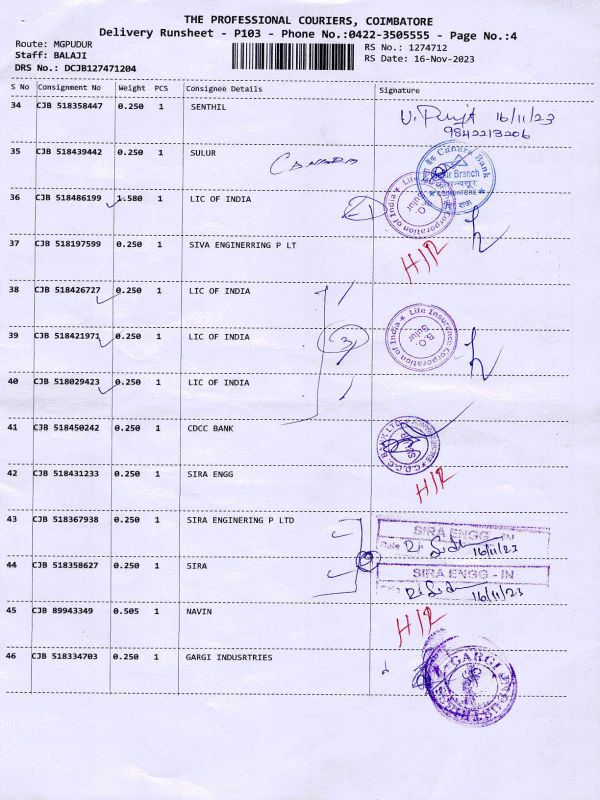 THE PROFESSIONAL COURIERS, COIMBATORE
Delivery Runsheet - P103 - Phone No.:0422-3505555 - Page No.:4
Route: MGPUDUR
RS No.: 1274712
Staff: BALAJI
RS Date: 16-Nov-2023
DRS No.: DCJB127471204
S No Consignment No Weight PCS Consignee Details Signature
34 CJB 518358447 0.250 1 SENTHIL
16/11/23
9842213206
35 CJB 518439442 0.250 1 SULUR
Canara Bank
Branch
COIMBATORE
36 CJB 518486199 1.580 1 LIC OF INDIA
Life Insurance Corporation of India
B.O.
Sulur
37 CJB 518197599 0.250 1 SIVA ENGINERRING P LT
H/R
38 CJB 518426727 0.250 1 LIC OF INDIA
39 CJB 518421971 0.250 1 LIC OF INDIA
3
Life Insurance Corporation of India
B.O.
Sulur
40 CJB 518029423 0.250 1 LIC OF INDIA
41 CJB 518450242 0.250 1 CDCC BANK
C.D.C.C. BANK LTD
42 CJB 518431233 0.250 1 SIRA ENGG
H/R
43 CJB 518367938 0.250 1 SIRA ENGINERING P LTD
SIRA ENGG
16/11/23
44 CJB 518358627 0.250 1 SIRA
SIRA ENGG - IN
16/11/23
45 CJB 89943349 0.505 1 NAVIN
H/R
46 CJB 518334703 0.250 1 GARGI INDUSRTRIES
GARGI INDUSTRIES